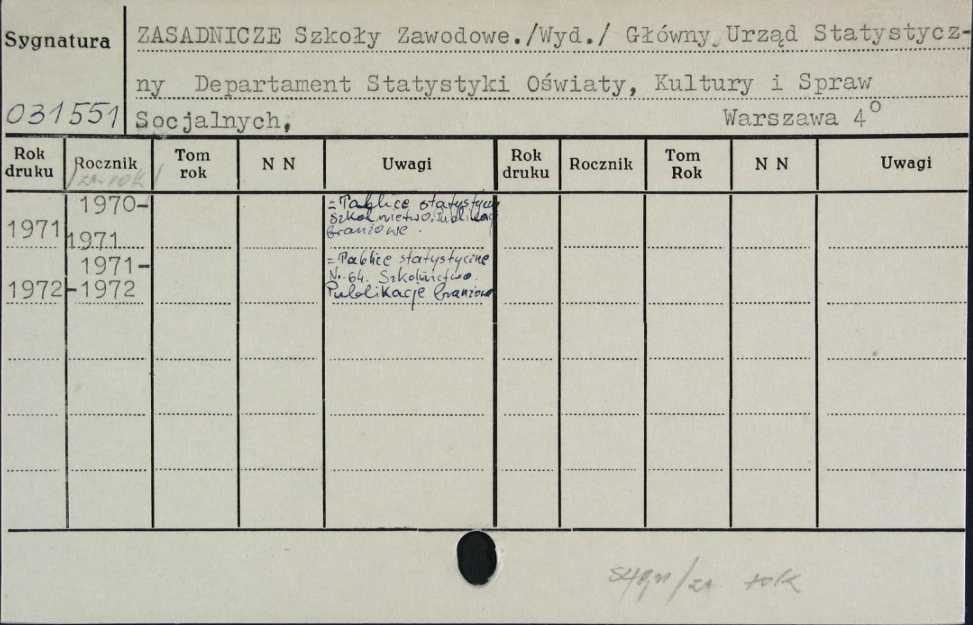 Sygnatura
ZASADNICZE Szkoły Zawodowe./Wyd./ Główny Urząd Statystycz-
ny Departament Statystyki Oświaty, Kultury i Spraw
031551
Socjalnych, Warszawa 4°
Rok druku Rocznik Tom rok N N Uwagi Rok druku Rocznik Tom Rok N N Uwagi
/za rok/
1971 1970-1971 = Tablice statystyczn szkolnictwo.
branżowe.
1972 1971-1972 = Tablice statystyczne
Nr 64. Szkolnictwo.
Publikacje branżowe
sygn/za rok